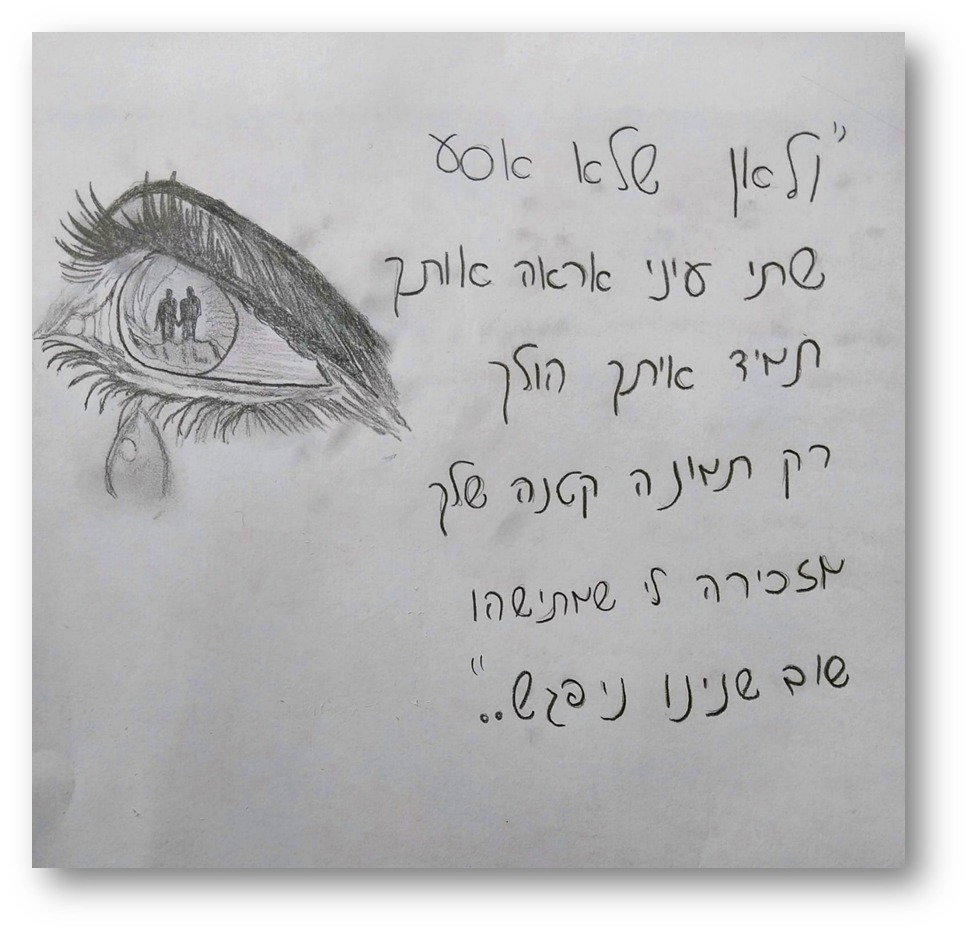 "ולאן שלא אסע
שתי עיני אראה אותך
תמיד איתך הולך
רק תמונה קטנה שלך
מזכירה לי שמתישהו
שוב שנינו ניפגש.."